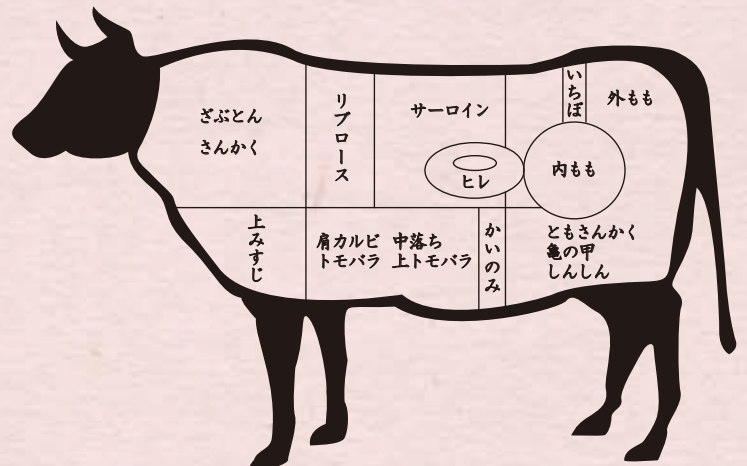 ざぶとん
さんかく
リブロース
サーロイン
ヒレ
いちぼ
外もも
内もも
上みすじ
肩カルビ 中落ち
トモバラ 上トモバラ
かいのみ
ともさんかく
亀の甲
しんしん